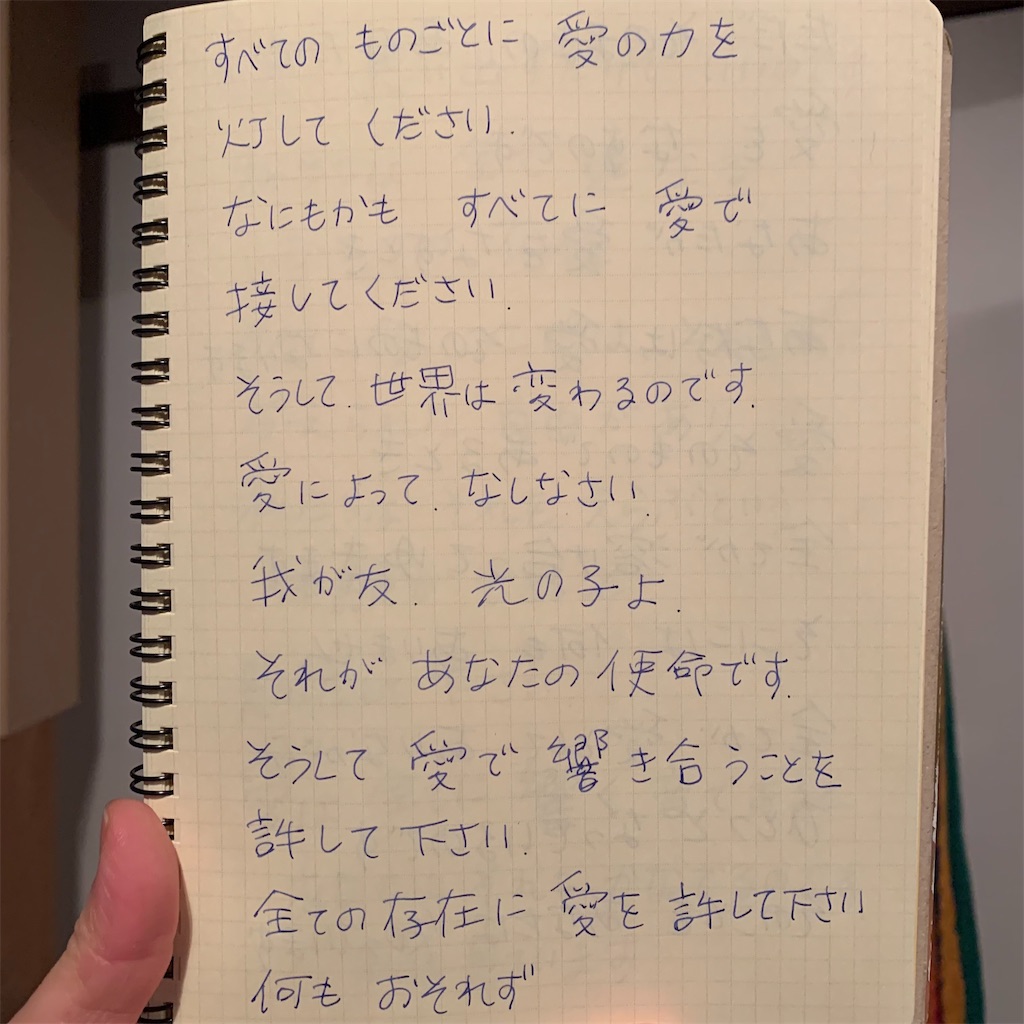 すべての ものごとに 愛の力を
灯して ください.
なにもかも すべてに 愛で
接してください.
そうして. 世界は変わるのです.
愛によって. なしなさい.
我が友. 光の子よ.
それが あなたの使命です.
そうして 愛で 響き合うことを
許して下さい.
全ての存在に 愛を 許して下さい
何も おそれず